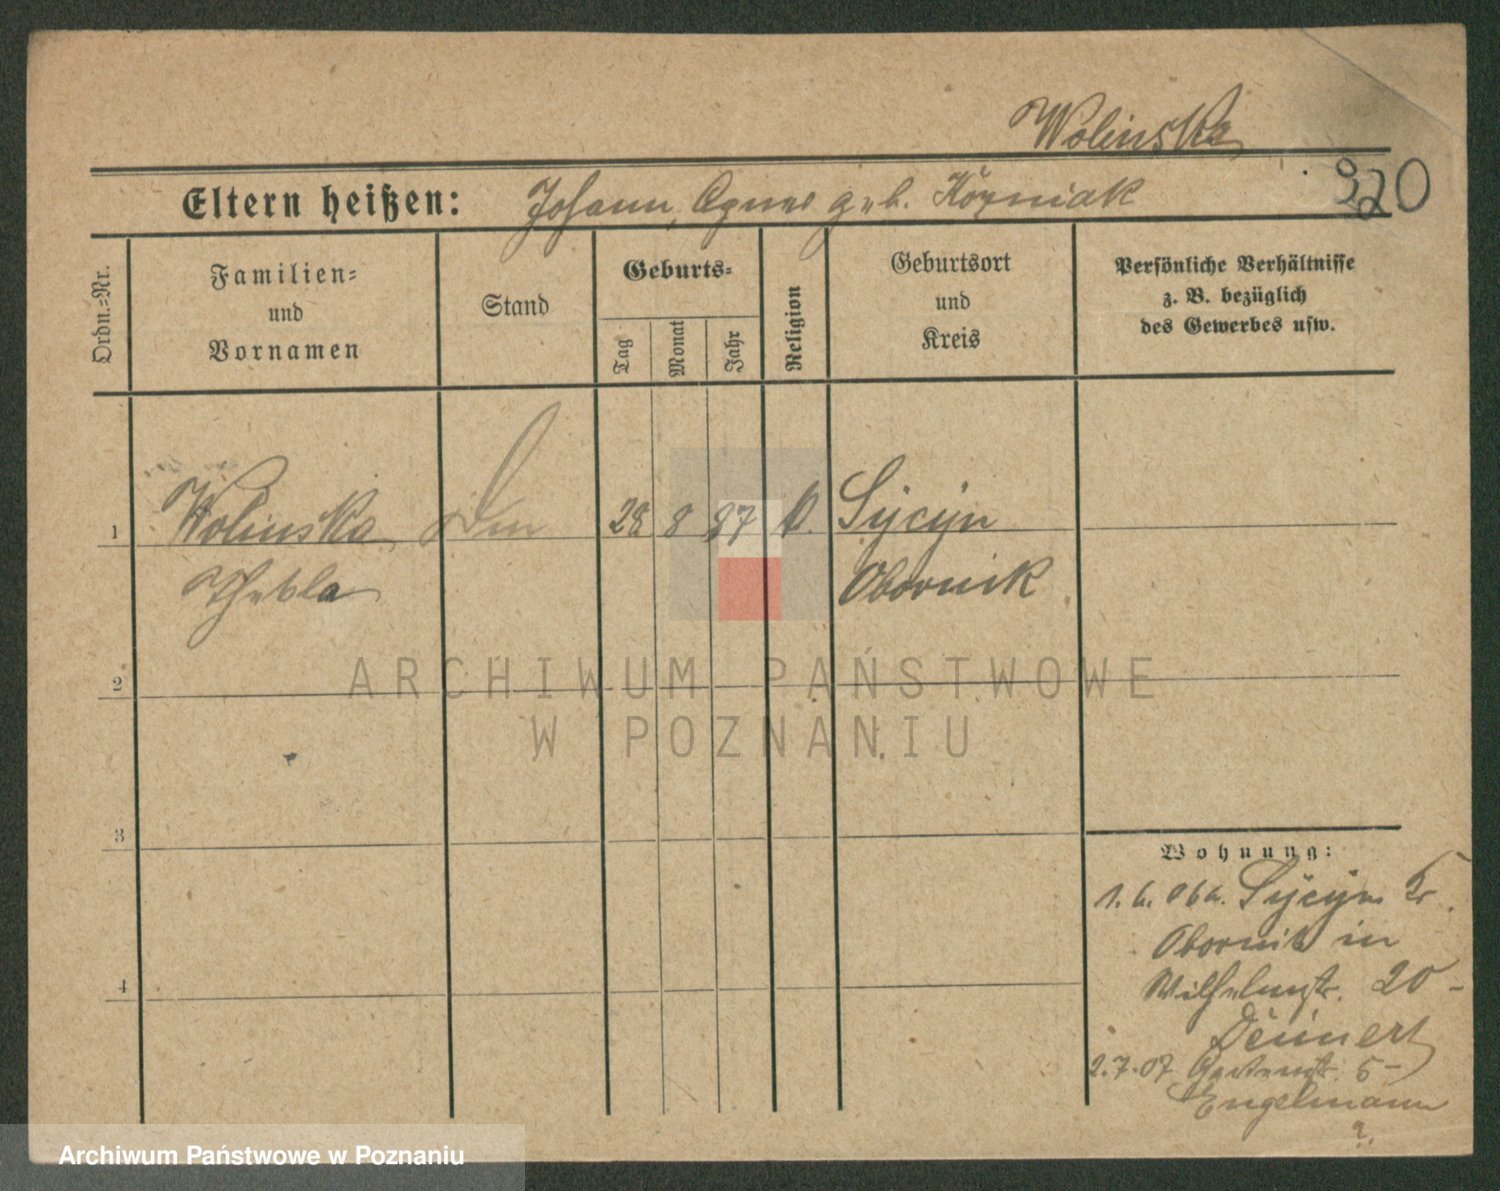 Wolinska
Eltern heißen: Johann, Agnes geb. Kózniak
320
Ordn.-Nr.
Familien-
und
Vornamen
Stand
Geburts-
Tag
Monat
Jahr
Religion
Geburtsort
und
Kreis
Persönliche Verhältnisse
z. B. bezüglich
des Gewerbes usw.
1
Wolinska 28 8 87 k. Sycyn
Thekla Obornik
2
ARCHIWUM PAŃSTWOWE
W POZNANIU
3
Wohnung:
Sycyn Kr.
Obornik in
4
Wilhelmstr. 20 -
Deinert
2.7.07 Gartenstr. 5 -
Engelmann
?
Archiwum Państwowe w Poznaniu